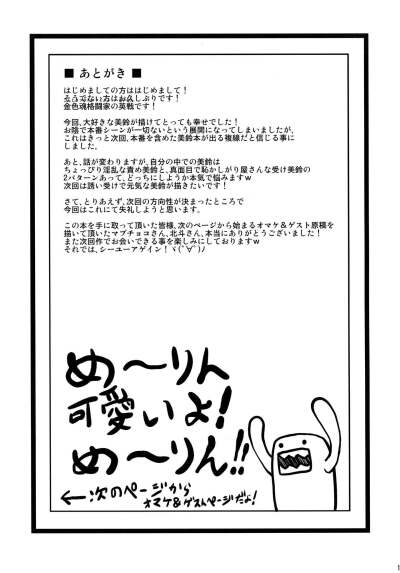 ■ あとがき ■
はじめましての方ははじめまして！
そうでない方はお久しぶりです！
金色魂格闘家の英戦です！
今回、大好きな美鈴が描けてとっても幸せでした！
お陰で本番シーンが一切ないという展開になってしまいましたが、
これはきっと次回、本番を含めた美鈴本が出る複線だと信じる事に
しました。
あと、話が変わりますが、自分の中での美鈴は
ちょっぴり淫乱な責め美鈴と、真面目で恥かしがり屋さんな受け美鈴の
2パターンあって、どっちにしようか本気で悩みますｗ
次回は誘い受けで元気な美鈴が描きたいです！
さて、とりあえず、次回の方向性が決まったところで
今回はこれにて失礼しようと思います。
この本を手に取って頂いた皆様、次のページから始まるオマケ＆ゲスト原稿を
描いて頂いたマブチョコさん、北斗さん、本当にありがとうございました！
また次回作でお会いできる事を楽しみにしておりますｗ
それでは、シーユーアゲイン！ヾ(ﾟ∀ﾟ)ﾉ
め〜りん
可愛いよ！
め〜りん!!
←次のページから
オマケ＆ゲストページだよ！
1